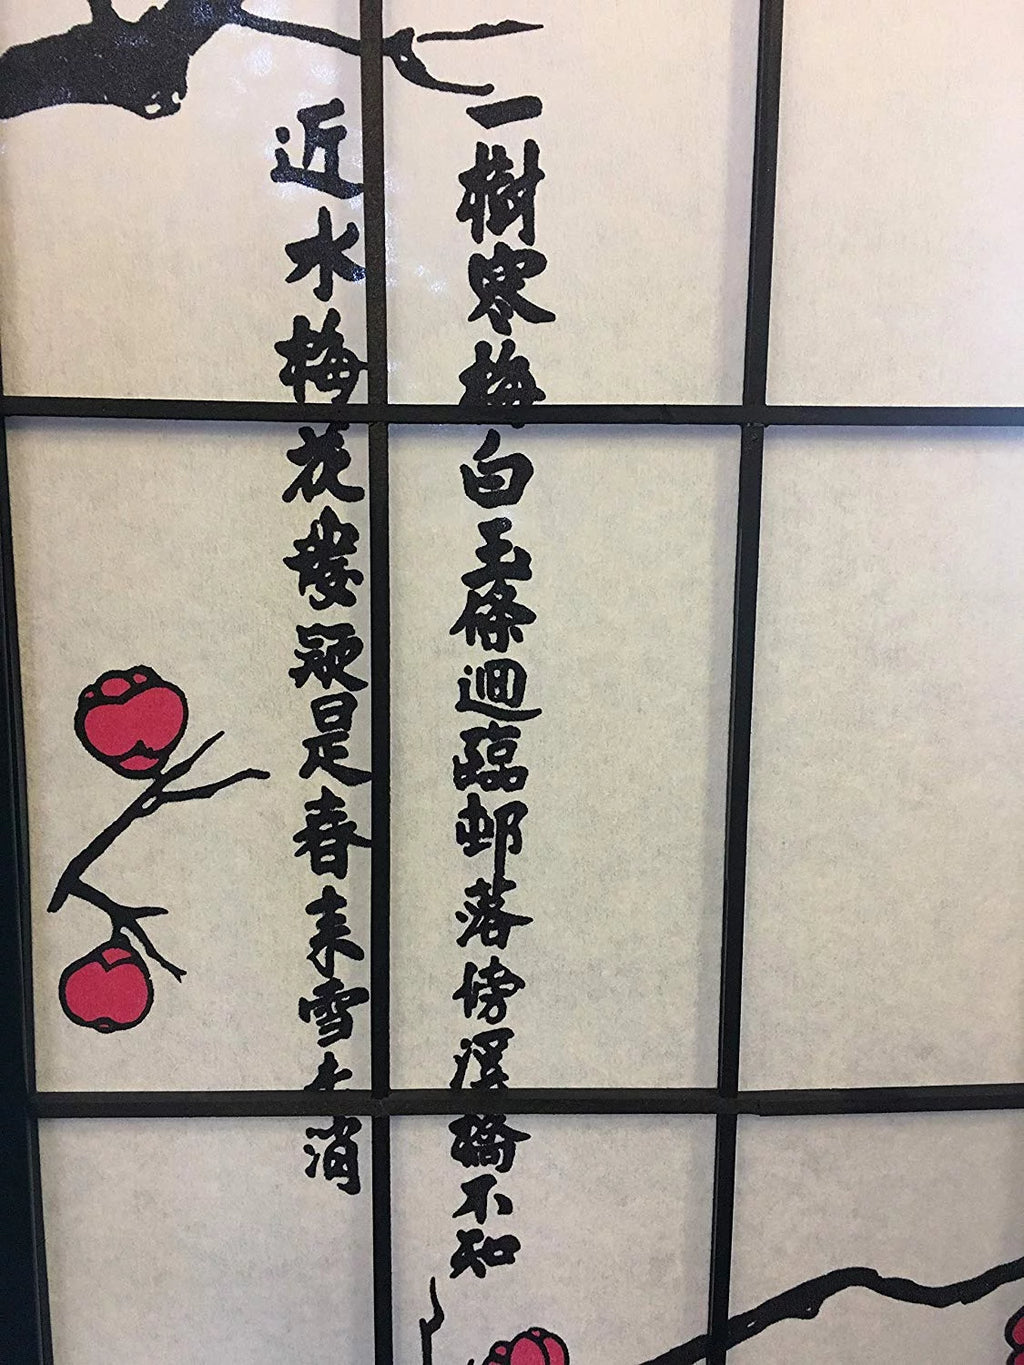 一樹寒梅白玉條迴臨邨落傍溪橋不知
近水梅花發疑是春来雪未消